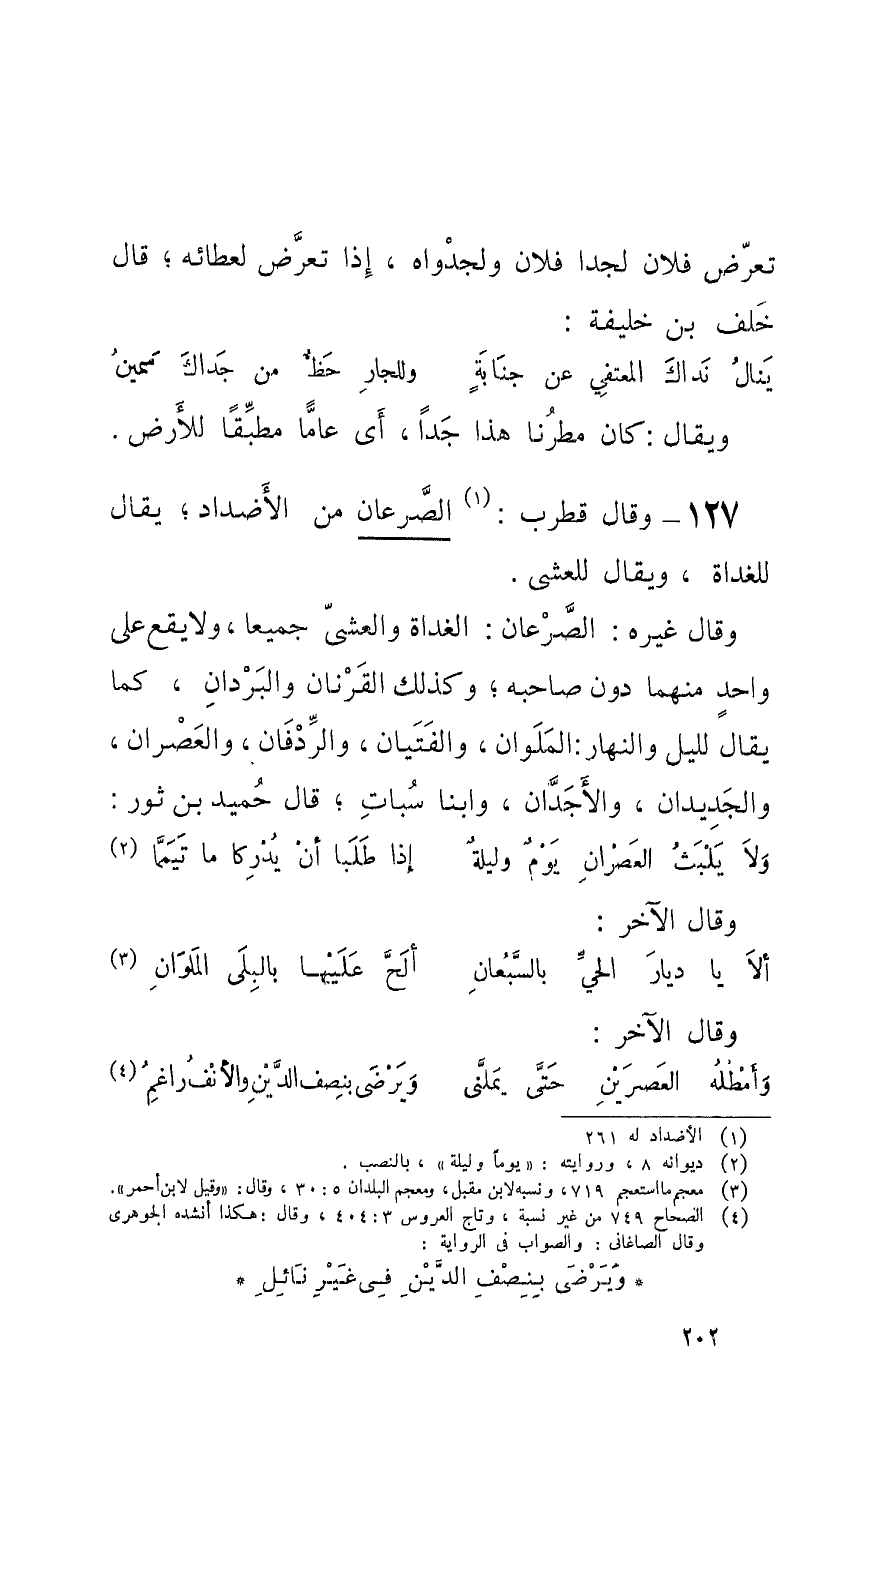 تعرّض فلان لجدا فلان ولجدْواه ، إذا تعرَّض لعطائه ؛ قال
خَلف بن خليفة :
يَنالُ نَداكَ المعتفِي عن جنَابَةٍ وللجارِ حَظٌّ من جَداكَ سَمينُ
ويقال : كان مطرُنا هذا جَداً ، أَى عامًّا مطبِّقًا للأَرض .
١٢٧ – وقال قطرب : (١) الصَّرعان من الأَضداد ؛ يقال
للغداة ، ويقال للعشى .
وقال غيره : الصَّرْعان : الغداة والعشىّ جميعا ، ولا يقع على
واحدٍ منهما دون صاحبه ؛ وكذلك القَرْنان والبَرْدانِ ، كما
يقال لليل والنهار : المَلَوان ، والفَتَيان ، والرِّدْفَان ، والعَصْران ،
والجَدِيدان ، والأَجَدَّان ، وابنا سُباتٍ ؛ قال حُميد بن ثور :
وَلاَ يَلْبَثُ العَصْرانِ يَوْمٌ وليلةٌ إذا طَلَبا أنْ يُدْرِكا ما تَيَمَّما (٢)
وقال الآخر :
ألاَ يا ديارَ الحيِّ بالسَّبُعانِ ألَحَّ عَلَيْها بالبِلَى المَلَوَانِ (٣)
وقال الآخر :
وَأَمْطُلُه العَصرَيْنِ حَتَّى يَمَلنَّى وَيَرْضَى بنِصف الدَّيْنِ والأنْفُ راغمُ (٤)
(١) الأضداد له ٢٦١
(٢) ديوانه ٨ ، وروايته : « يوماً وليلة » ، بالنصب .
(٣) معجم ما استعجم ٧١٩ ، ونسبه لابن مقبل ، ومعجم البلدان ٥ : ٣٠ ، وقال : «وقيل لابن أحمر».
(٤) الصحاح ٧٤٩ من غير نسبة ، وتاج العروس ٣ : ٤٠٤ ، وقال : هكذا أنشده الجوهرى
وقال الصاغانى : والصواب فى الرواية :
* وَيَرْضَى بِنِصْفِ الدَّيْنِ فِى غَيْرِ نَائِلِ *
٢٠٢